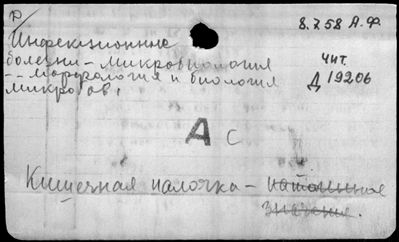 Р
8.X58 А.Ф.
Инфекционные
болезни - микробиология
-- морфология и биология
микробов,
чит.
Д 19206
А С
Кишечная палочка - патогенное
значение.